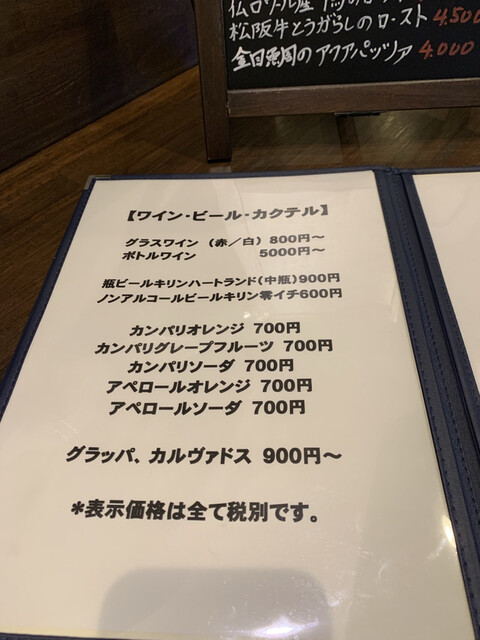 松阪牛とうがらしのロースト 4.500
金目鯛のアクアパッツァ 4.000
【ワイン・ビール・カクテル】
グラスワイン （赤／白） 800円～
ボトルワイン 5000円～
瓶ビールキリンハートランド（中瓶）900円
ノンアルコールビールキリン零イチ600円
カンパリオレンジ 700円
カンパリグレープフルーツ 700円
カンパリソーダ 700円
アペロールオレンジ 700円
アペロールソーダ 700円
グラッパ、カルヴァドス 900円～
＊表示価格は全て税別です。